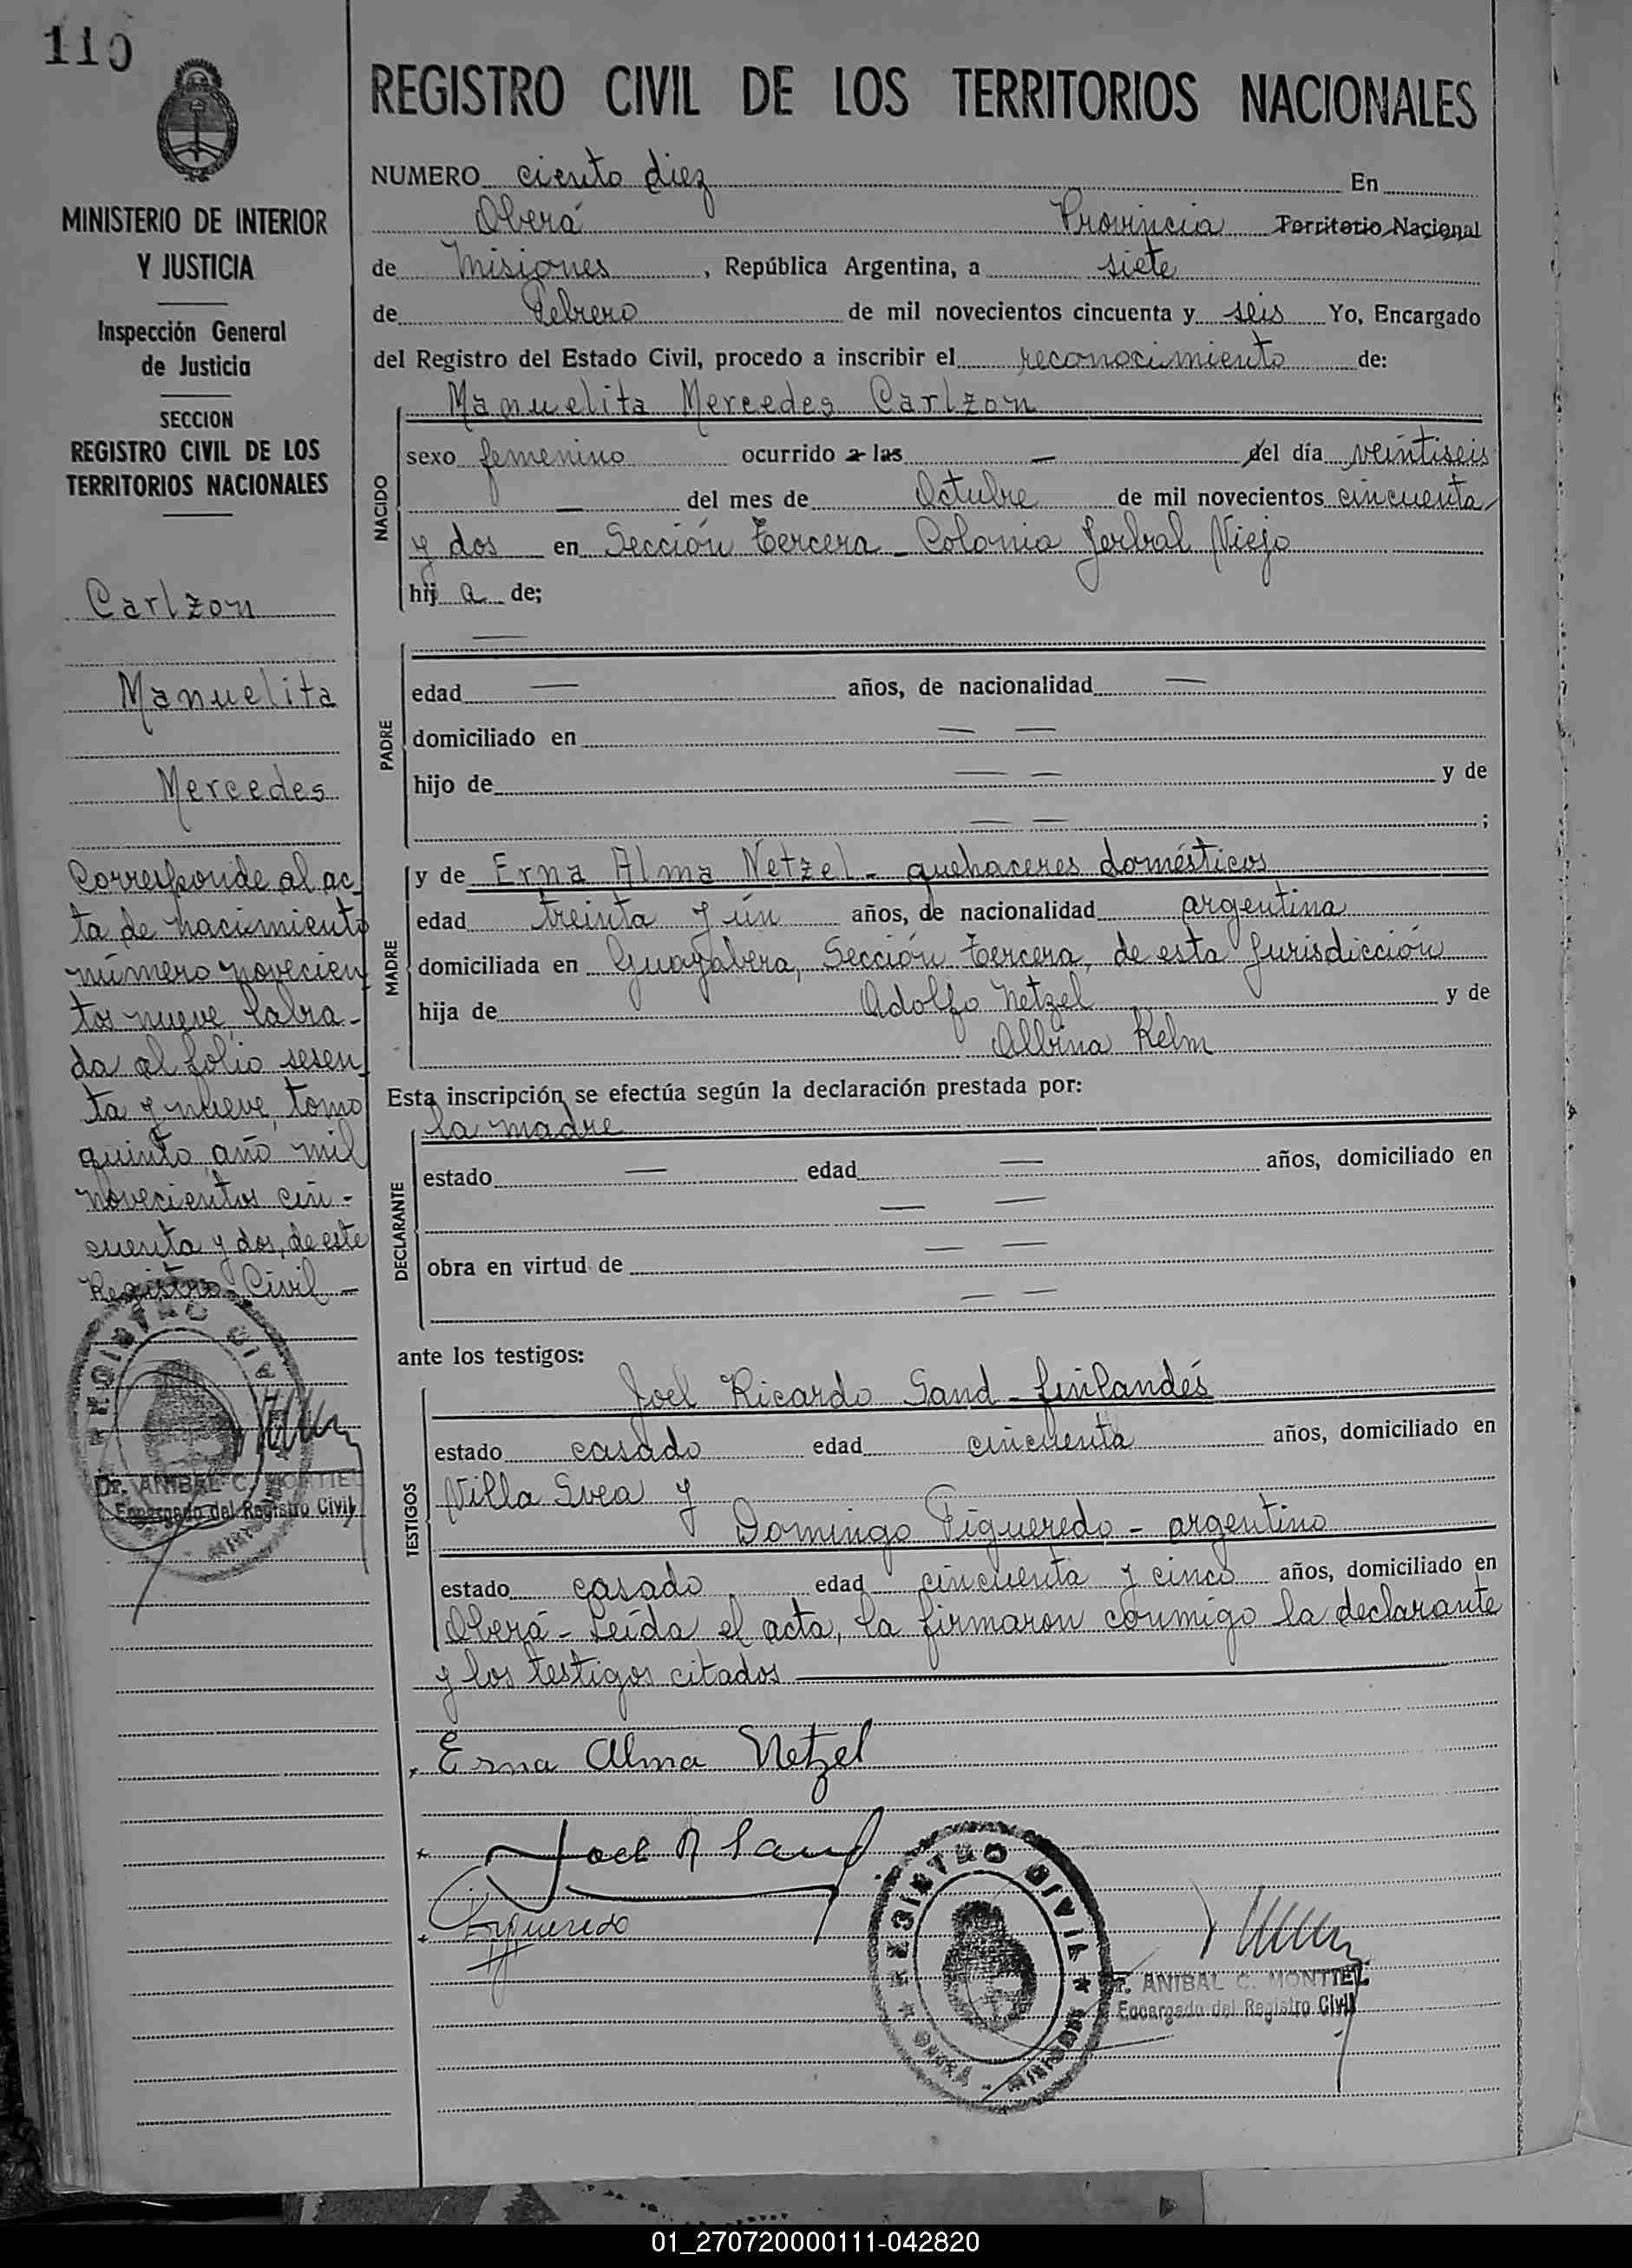 110
MINISTERIO DE INTERIOR
Y JUSTICIA
Inspección General
de Justicia
SECCION
REGISTRO CIVIL DE LOS
TERRITORIOS NACIONALES
Carlzon
Manuelita
Mercedes
Corresponde al ac
ta de nacimiento
número novecien
tos nueve, labra-
da al folio sesen
ta y nueve, tomo
quinto, año mil
novecientos cin-
cuenta y dos, de este
Registro Civil -
REGISTRO CIVIL
Dr. ANIBAL C. MONTIEL
Encargado del Registro Civil
REGISTRO CIVIL DE LOS TERRITORIOS NACIONALES
NUMERO ciento diez En
Oberá Provincia Territorio Nacional
de Misiones, República Argentina, a siete
de Febrero de mil novecientos cincuenta y seis Yo, Encargado
del Registro del Estado Civil, procedo a inscribir el reconocimiento de:
NACIDO
Manuelita Mercedes Carlzon
sexo femenino ocurrido a las — del día veintiseis
— del mes de Octubre de mil novecientos cincuenta
y dos en Sección tercera - Colonia Yerbal Viejo
hij a de;
PADRE
—
edad — años, de nacionalidad —
domiciliado en — —
hijo de — — y de
— — ;
MADRE
y de Erna Alma Netzel - quehaceres domésticos
edad treinta y ún años, de nacionalidad argentina
domiciliada en Guayabera, Sección tercera, de esta Jurisdicción
hija de Adolfo Netzel y de
Albina Kelm
Esta inscripción se efectúa según la declaración prestada por:
DECLARANTE
la madre
estado — edad — años, domiciliado en
— —
obra en virtud de — —
— —
ante los testigos:
TESTIGOS
Joel Ricardo Sand - finlandés
estado casado edad cincuenta años, domiciliado en
Villa Svea y
Domingo Figueredo - argentino
estado casado edad cincuenta y cinco años, domiciliado en
Oberá - Leída el acta, la firmaron conmigo la declarante
y los testigos citados
Erna Alma Netzel
Joel R Sand
Figueredo
REGISTRO CIVIL
OBERA - MISIONES
Dr. ANIBAL C. MONTIEL
Encargado del Registro Civil
01_270720000111-042820